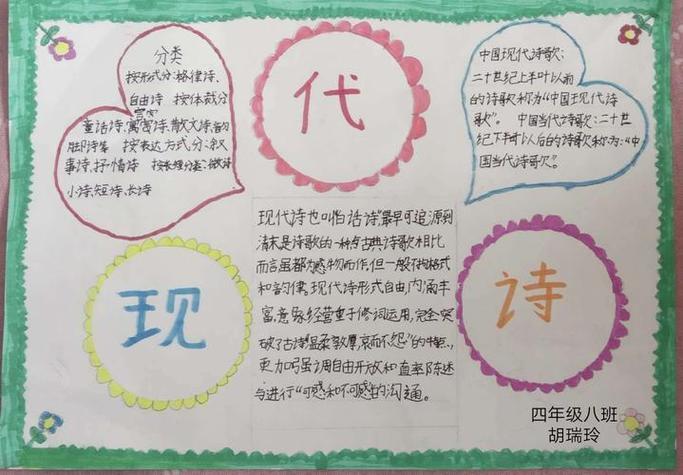 分类
按形式分:格律诗、
自由诗 按体裁分
寓言
童话诗、寓言诗、散文诗、
按表达方式分:叙
事诗、抒情诗 按长短分类:微诗
小诗、短诗、长诗
代
中国现代诗歌:
二十世纪上半叶以前
的诗歌称为“中国现代诗
歌”。 中国当代诗歌:二十世
纪下半叶以后的诗歌称为:“中
国当代诗歌”。
现
现代诗也叫“白话诗”最早可追源到
清末是诗歌的一种点古典诗歌相比
而言虽都为感物而作,但一般不拘格式
和韵律。现代诗形式自由,内涵丰
富,意象经营重于修词运用,完全突
破了古诗“温柔敦厚,哀而不怨”的特,
更加强调自由开放和直率陈述
与进行“可感和不可感性的沟通。
诗
四年级八班
胡瑞玲